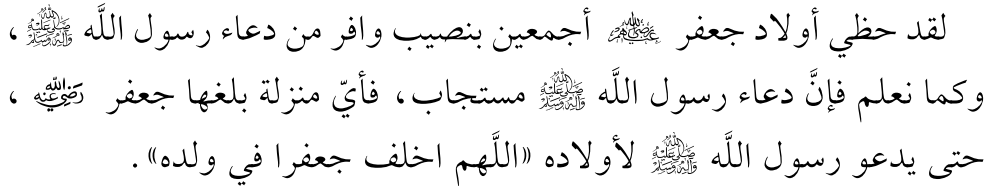 لقد حظي أولاد جعفر رضي الله عنهم أجمعين بنصيب وافر من دعاء رسول اللَّه صلى الله عليه وآله وسلم ،
وكما نعلم فإنَّ دعاء رسول اللَّه صلى الله عليه وآله وسلم مستجاب، فأيّ منزلة بلغها جعفر رضي الله عنه ،
حتى يدعو رسول اللَّه صلى الله عليه وآله وسلم لأولاده «اللَّهم اخلف جعفرا في ولده».